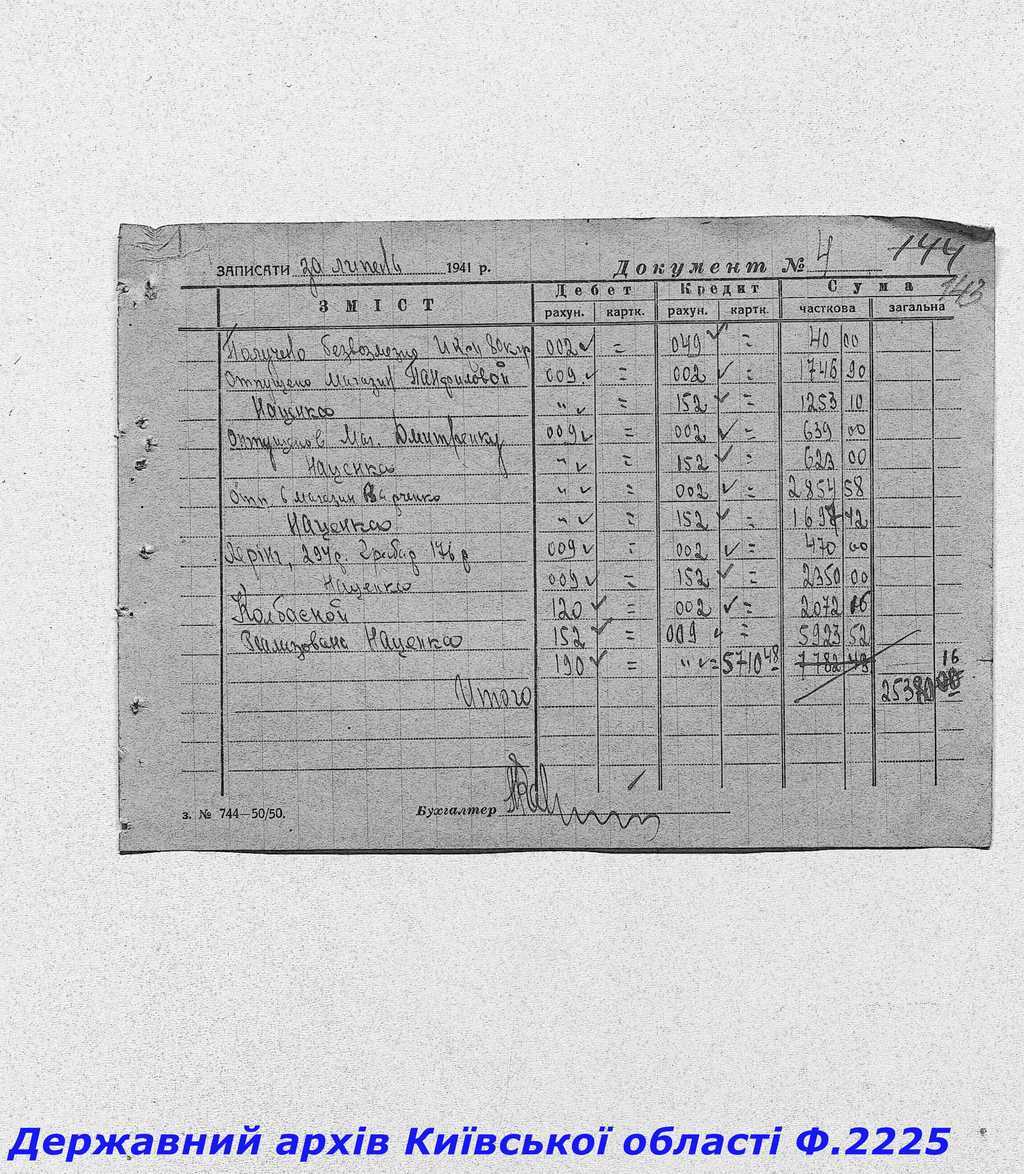 144
143
ЗАПИСАТИ за липень 1941 р. Документ № 4
ЗМІСТ Дебет Кредит Сума
рахун. картк. рахун. картк. часткова загальна
Получено безвозмезно 002 = 049 = 40 00
Отпущено магазин Панфиловой 009 = 002 = 1746 90
Наценка " = 152 = 1253 10
Отпущено в маг. Дмитренку 009 = 002 = 639 00
Наценка " = 152 = 623 00
Отп. в магазин " = 002 = 2854 58
Наценка " = 152 = 1697 42
009 = 002 = 470 00
Наценка 009 = 152 = 2350 00
Колбасной 120 = 002 = 2072 16
Реализована Наценка 152 = 009 = 5923 52
190 = " = 5710 48 7782 48
Итого 25370 16
з. № 744—50/50. Бухгалтер
Державний архів Київської області Ф.2225